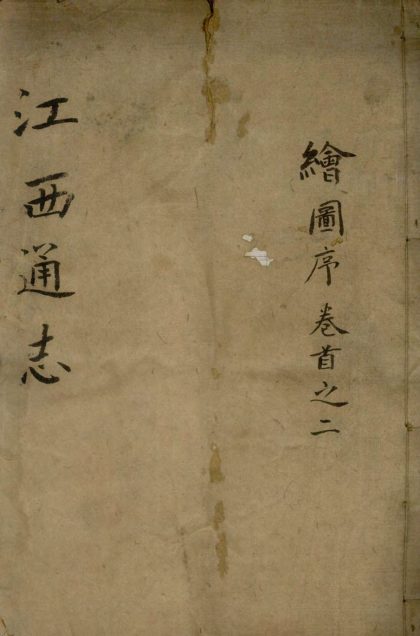 繪圖序卷首之二
江西通志